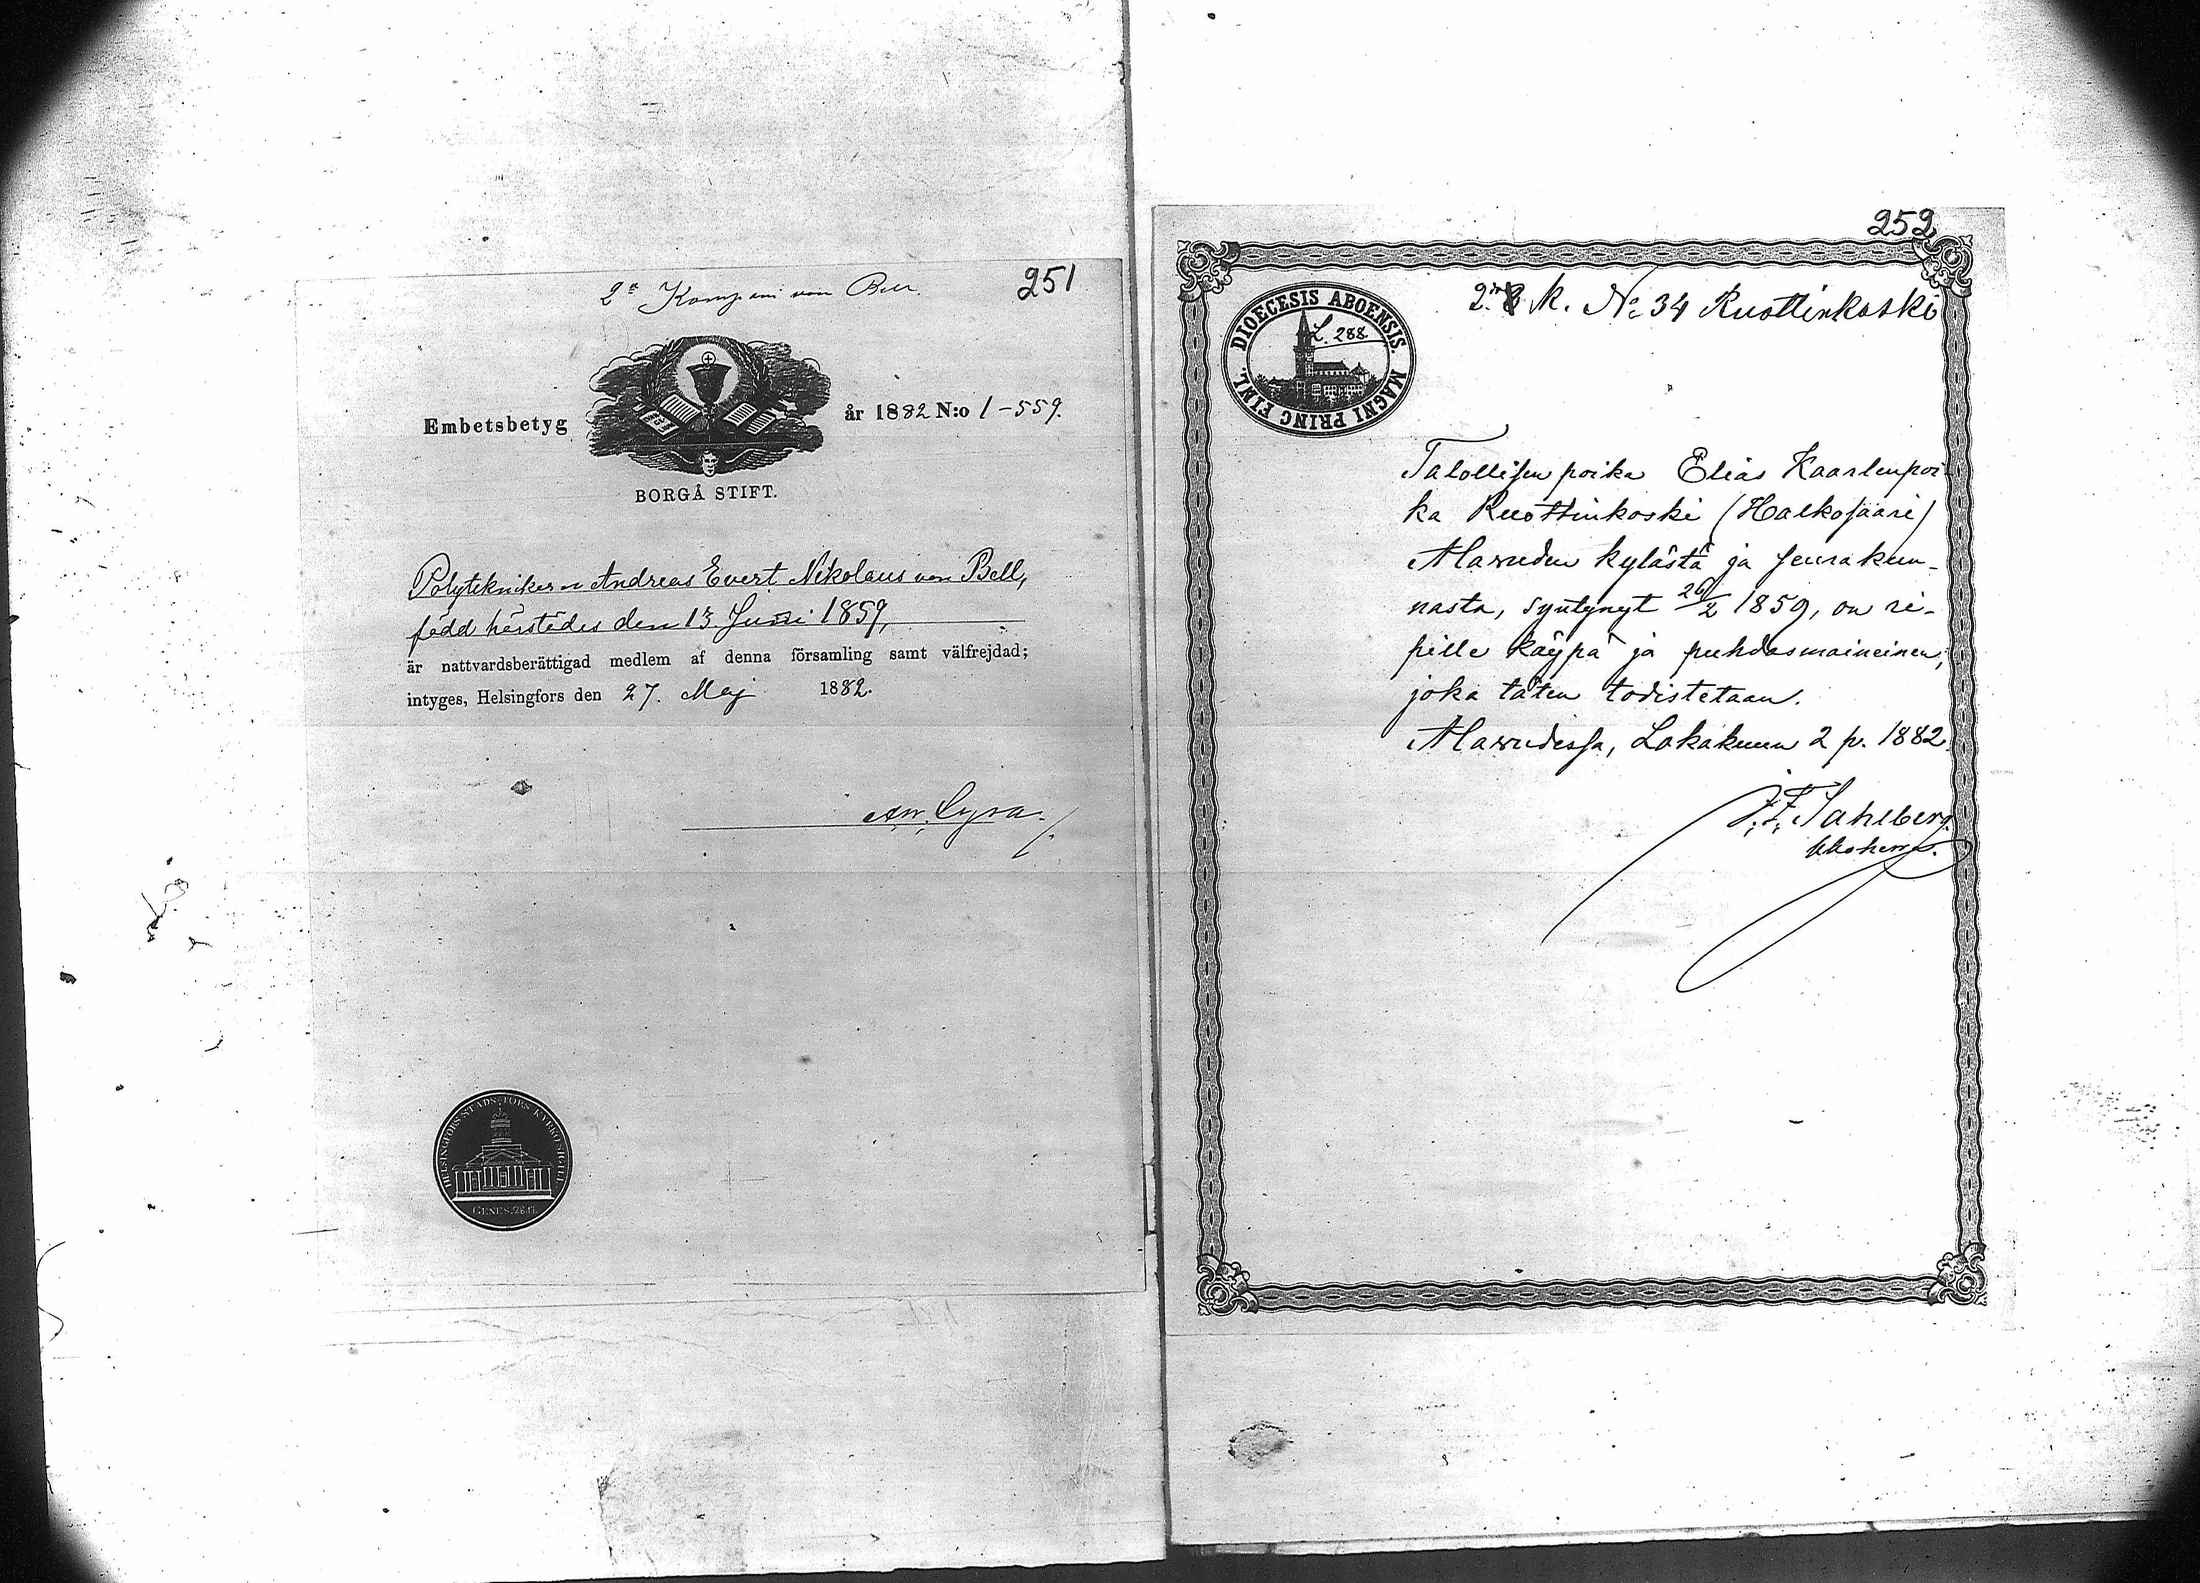 251
2a Kompani von Bell.
Embetsbetyg år 1882 N:o 1-559.
BORGÅ STIFT.
Polyteknikern Andreas Evert Nikolaus von Bell,
född härstädes den 13 Juni 1859,
är nattvardsberättigad medlem af denna församling samt välfrejdad;
intyges, Helsingfors den 27. Maj 1882.
HELSINGFORS STADS FÖRS KYRKO SIGILL
GENES. 28.17.
252
2:n K. No 34 Ruottinkoski
DIOECESIS ABOENSIS. MAGNI PRINC FINL.
L. 288.
Talollisen poika Elias Kaarlenpoi-
ka Ruottinkoski (Halkosaari)
Alavuden kylästä ja seurakun-
nasta, syntynyt 26/2 1859, on ri-
pille käypä ja puhdasmaineinen;
joka täten todistetaan.
Alavudessa, Lokakuun 2 p. 1882.
J. F. Sahlberg.